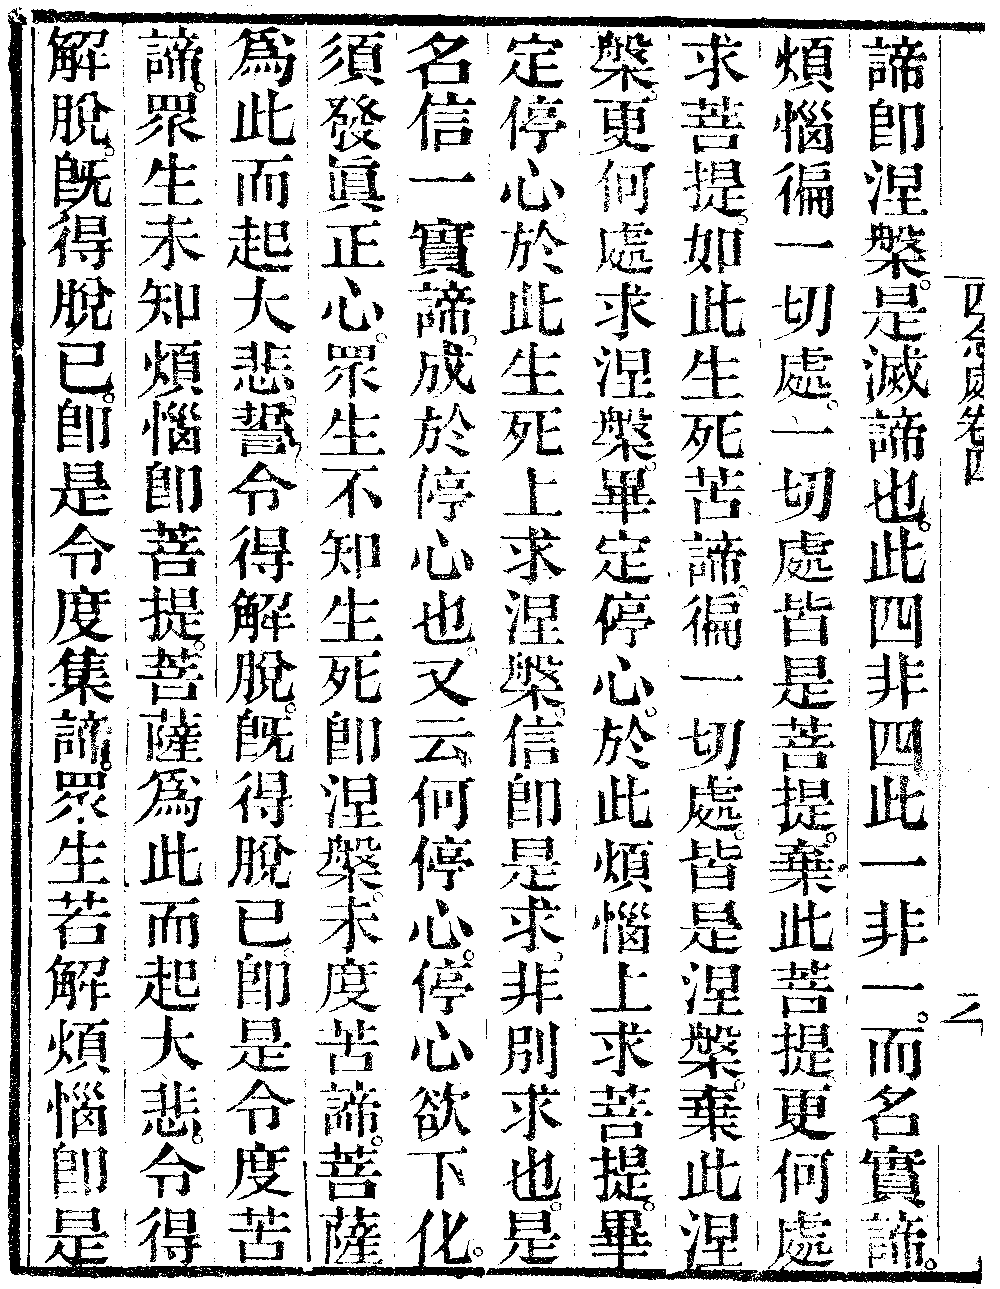 四念處卷四 二
諦卽涅槃。是滅諦也。此四非四此一非一。而名實諦。
煩惱徧一切處。一切處皆是菩提。棄此菩提更何處
求菩提。如此生死苦諦。徧一切處。皆是涅槃。棄此涅
槃。更何處求涅槃。畢定停心。於此煩惱上求菩提。畢
定停心。於此生死上求涅槃。信卽是求。非別求也。是
名信一實諦。成於停心也。又云何停心。停心欲下化。
須發眞正心。眾生不知生死卽涅槃。未度苦諦。菩薩
爲此而起大悲。誓令得解脫。旣得脫已卽是令度苦
諦。眾生未知煩惱卽菩提。菩薩爲此而起大悲。令得
解脫。旣得脫已。卽是令度集諦。眾生若解煩惱卽是